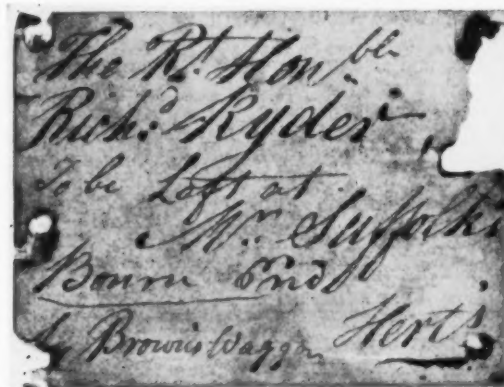 The Rt. Honble
Richd. Ryder
To be Left at
Mr. Suffolks
Bourn End
by Browns Waggon Herts